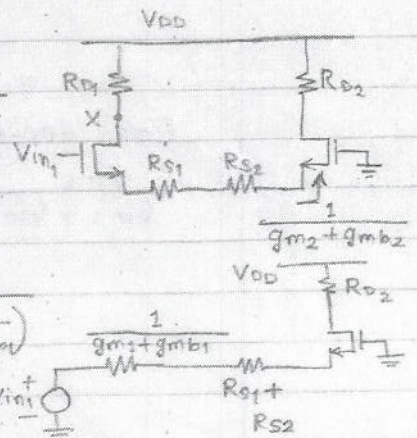 VDD
RD1
RD2
X
Vin1
RS1
RS2
1
gm2 + gmb2
VDD
RD2
1
gm1 + gmb1
Vin1
+
−
RS1 +
RS2